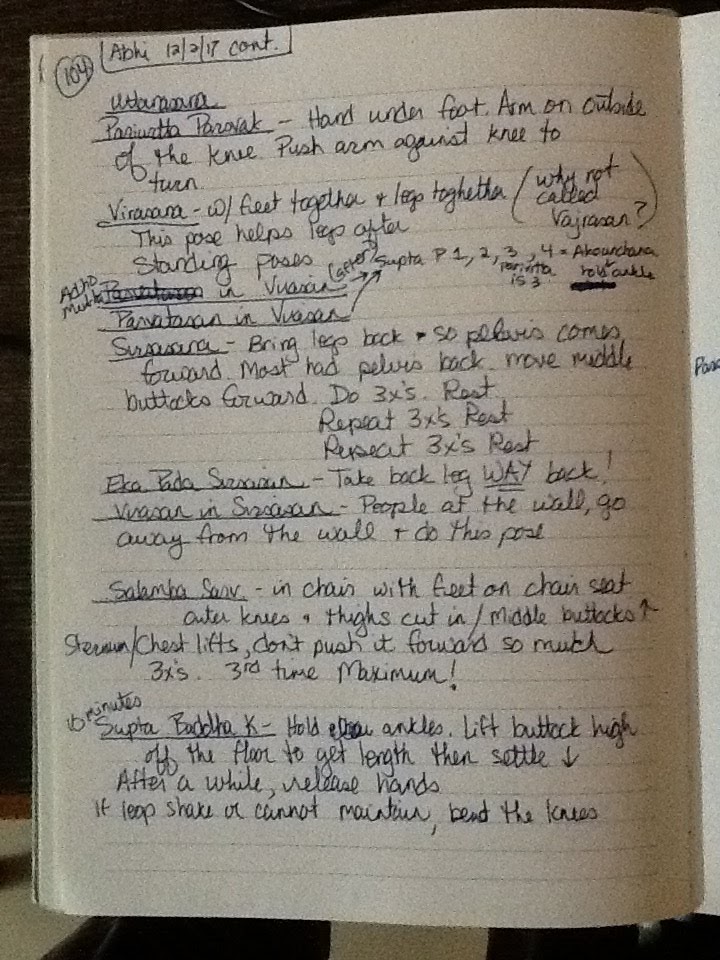 104 Abhi 12/2/17 cont.
Uttanasana
Pariwtta Parsvak - Hand under foot. Arm on outside
of the knee. Push arm against knee to
turn.
Virasana - w/ feet together + legs toghether (why not called Vajrasan?)
This pose helps legs after
Standing poses (after?) Supta P 1, 2, 3, 4 = Akounchana
is 3. ankle
Adho Mukha in Virasan
Parvatasan in Virasan
Sirsasana - Bring legs back so pelvis comes
forward. Most had pelvis back. move middle
buttocks forward. Do 3x's. Rest
Repeat 3x's Rest
Repeat 3x's Rest
Eka Pada Sirsasan - Take back leg WAY back!
Virasan in Sirsasan - People at the wall, go
away from the wall + do this pose
Salamba Sarv. - in chair with feet on chair seat
outer knees + thighs cut in / Middle buttocks ↑
Sternum/Chest lifts, don't push it forward so much
3x's. 3rd time Maximum!
10 minutes
Supta Baddha K - Hold ankles. Lift buttock high
off the floor to get length then settle ↓
After a while, release hands
If legs shake or cannot maintain, bend the knees